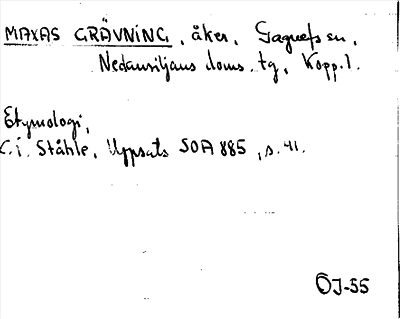 MAXAS GRÄVNING, åker, Gagnefs sn,
Nedansiljans doms. tg, Kopp.l.
Etymologi,
C.I. Ståhle, Uppsats SOA 885, s. 41.
ÖJ-55